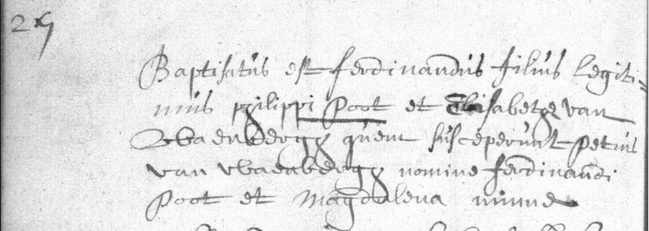 29
Baptisatus est ferdinandus filius legiti=
mus philippi Poot et Elisabeth van
quem susceperunt petrus
van nomine ferdinandi
Poot et Magdalena